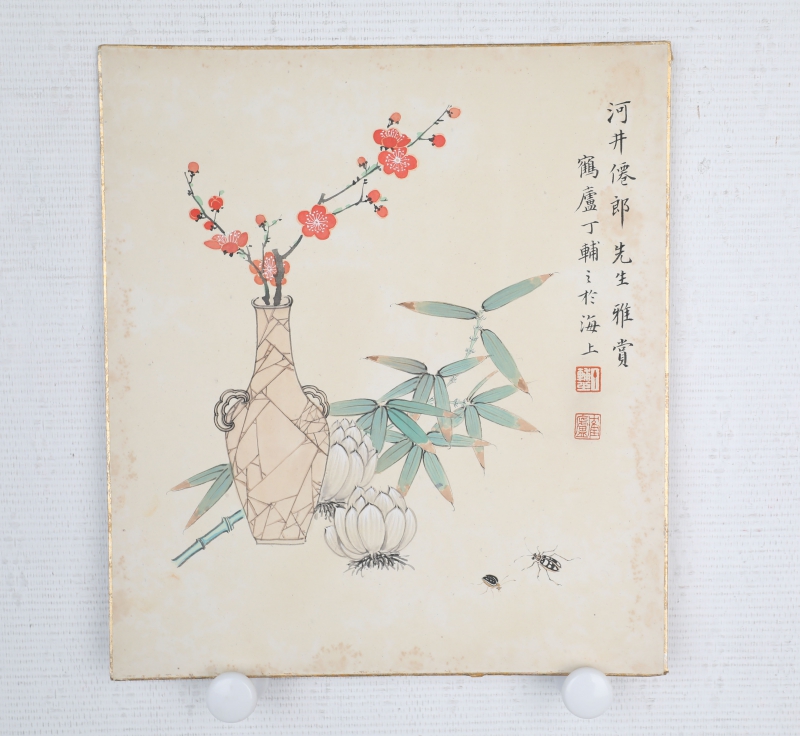 河井僊郎先生雅賞
鶴廬丁輔之於海上
丁輔
鶴廬